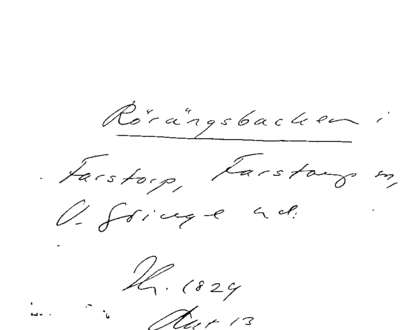 Rörängsbacken i
Farstorp, Farstorp sn,
V. Göinge hd.
Th. 1829
Akt 13